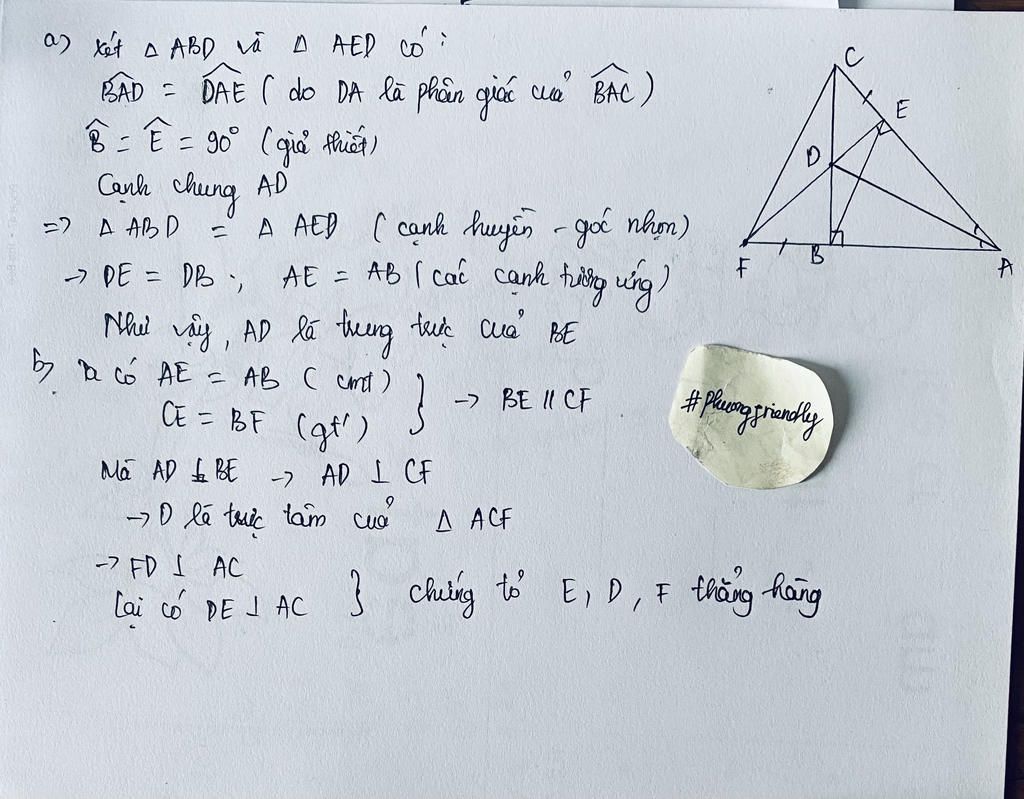 a) Xét Δ ABD và Δ AED có :
BAD = DAE ( do DA là phân giác của BAC )
B = E = 90° (giả thiết)
Cạnh chung AD
=> Δ ABD = Δ AED ( cạnh huyền - góc nhọn)
-> DE = DB ; AE = AB ( các cạnh tương ứng)
Như vậy, AD là trung trực của BE
b) Ta có AE = AB ( cmt)
CE = BF (gt)
} -> BE // CF
Mà AD ⊥ BE -> AD ⊥ CF
-> D là trực tâm của Δ ACF
-> FD ⊥ AC
Lại có DE ⊥ AC
} chứng tỏ E, D, F thẳng hàng
C
E
D
F
B
A
#phuongfriendly